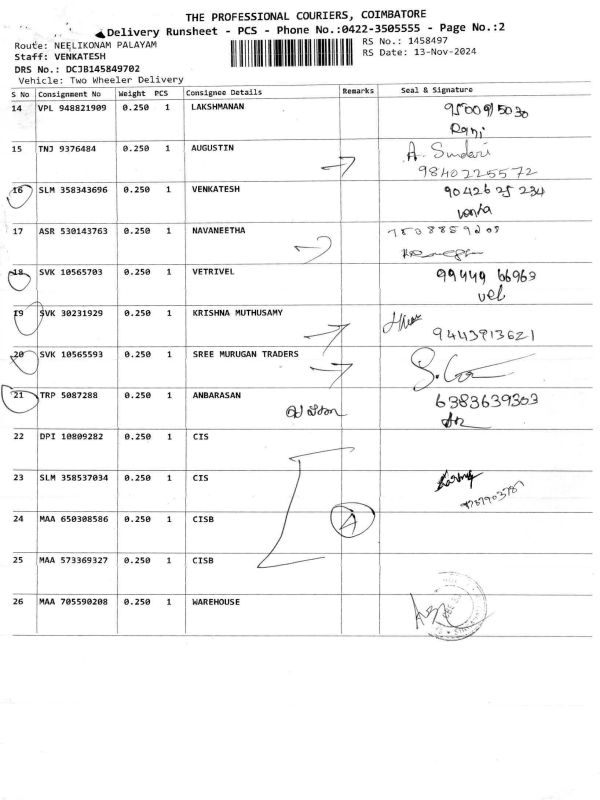 THE PROFESSIONAL COURIERS, COIMBATORE
Delivery Runsheet - PCS - Phone No.:0422-3505555 - Page No.:2
Route: NEELIKONAM PALAYAM
RS No.: 1458497
Staff: VENKATESH
RS Date: 13-Nov-2024
DRS No.: DCJB145849702
Vehicle: Two Wheeler Delivery
S No Consignment No Weight PCS Consignee Details Remarks Seal & Signature
14 VPL 948821909 0.250 1 LAKSHMANAN
Rani
15 TNJ 9376484 0.250 1 AUGUSTIN A. Sundari
9840225572
16 SLM 358343696 0.250 1 VENKATESH 90426 25 234
17 ASR 530143763 0.250 1 NAVANEETHA
18 SVK 10565703 0.250 1 VETRIVEL 99449 66963
vel
19 SVK 30231929 0.250 1 KRISHNA MUTHUSAMY
9443913621
20 SVK 10565593 0.250 1 SREE MURUGAN TRADERS
21 TRP 5087288 0.250 1 ANBARASAN 6383639303
22 DPI 10809282 0.250 1 CIS
23 SLM 358537034 0.250 1 CIS
24 MAA 650308586 0.250 1 CISB 4
25 MAA 573369327 0.250 1 CISB
26 MAA 705590208 0.250 1 WAREHOUSE